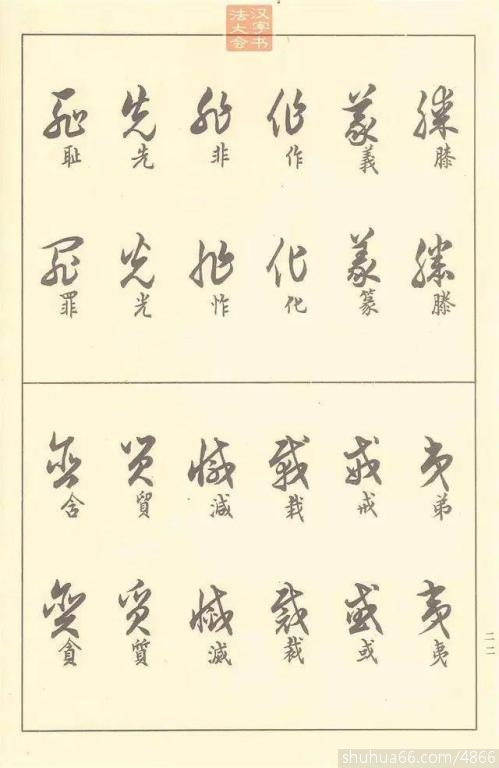 汉字书
法大会
膝 義 作 非 先 耻
滕 篆 化 怍 光 罪
弟 戒 栽 減 貿 含
夷 或 裁 滅 質 貪
二二
shuhua66.com/4866